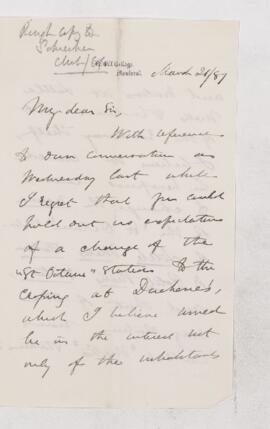 Rough copy to
Schreiber
Montreal,
March 26/87
My dear Sir,
With reference
to our conversation on
Wednesday last while
I regret that you could
hold out no expectation
of a change of the
"St Octave" Station to the
at Duchene's,
which I believe would
be in the interest not
only of the inhabitants